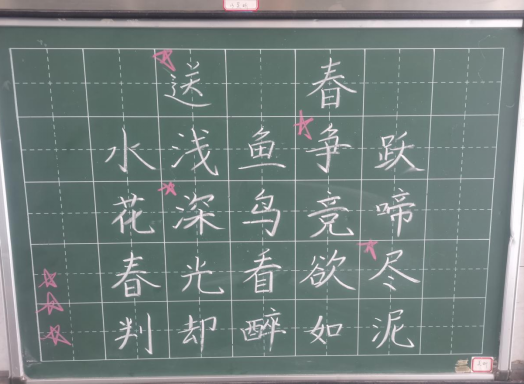 送春
水浅鱼争跃
花深鸟竞啼
春光看欲尽
判却醉如泥